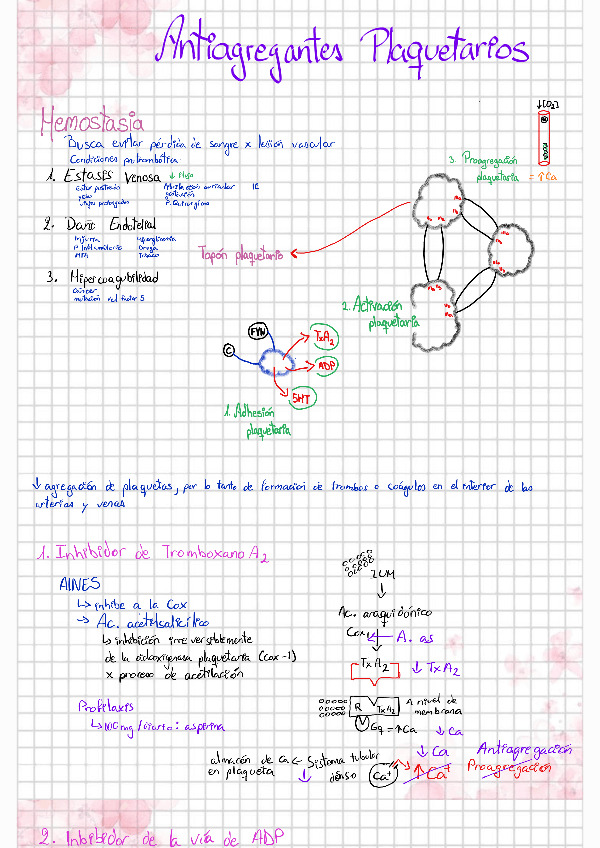 Antiagregantes Plaquetarios
↓[O₂]
Hemostasia
Busca evitar pérdida de sangre x lesión vascular
Condiciones protrombótica
1. Estasis venosa ↓ Flujo
2. Daño Endotelial
Injuria
P. Inflamatorio Droga
HTA Tabaco
3. Hipercoagubilidad
cáncer
mutación del factor 5
3. Proagregación
plaquetaria = ↑Ca
Tapón plaquetario
2. Activación
plaquetaria
FVW
C
TxA₂
ADP
5HT
1. Adhesión
plaquetaria
↓ agregación de plaquetas, por lo tanto de formación de trombos o coágulos en el interior de las
arterias y venas
1. Inhibidor de Tromboxano A₂
AINES
↳ inhibe a la Cox
→ Ac. acetilsalicílico
↳ inhibición irreversiblemente
de la ciclooxigenasa plaquetaria (cox-1)
x proceso de acetilación
Profilaxis
↳ 100mg/diario: aspirina
Ac. araquidónico
Cox
A. as
TxA₂ ↓ TxA₂
R TxA₂ A nivel de
membrana
Gq = ↑Ca ↓ Ca
↓ Ca Antiagregación
↑Ca⁺ Proagregación
almacén de Ca ← Sistema tubular
en plaqueta ↓ denso Ca⁺
2. Inhibidor de la vía de ADP